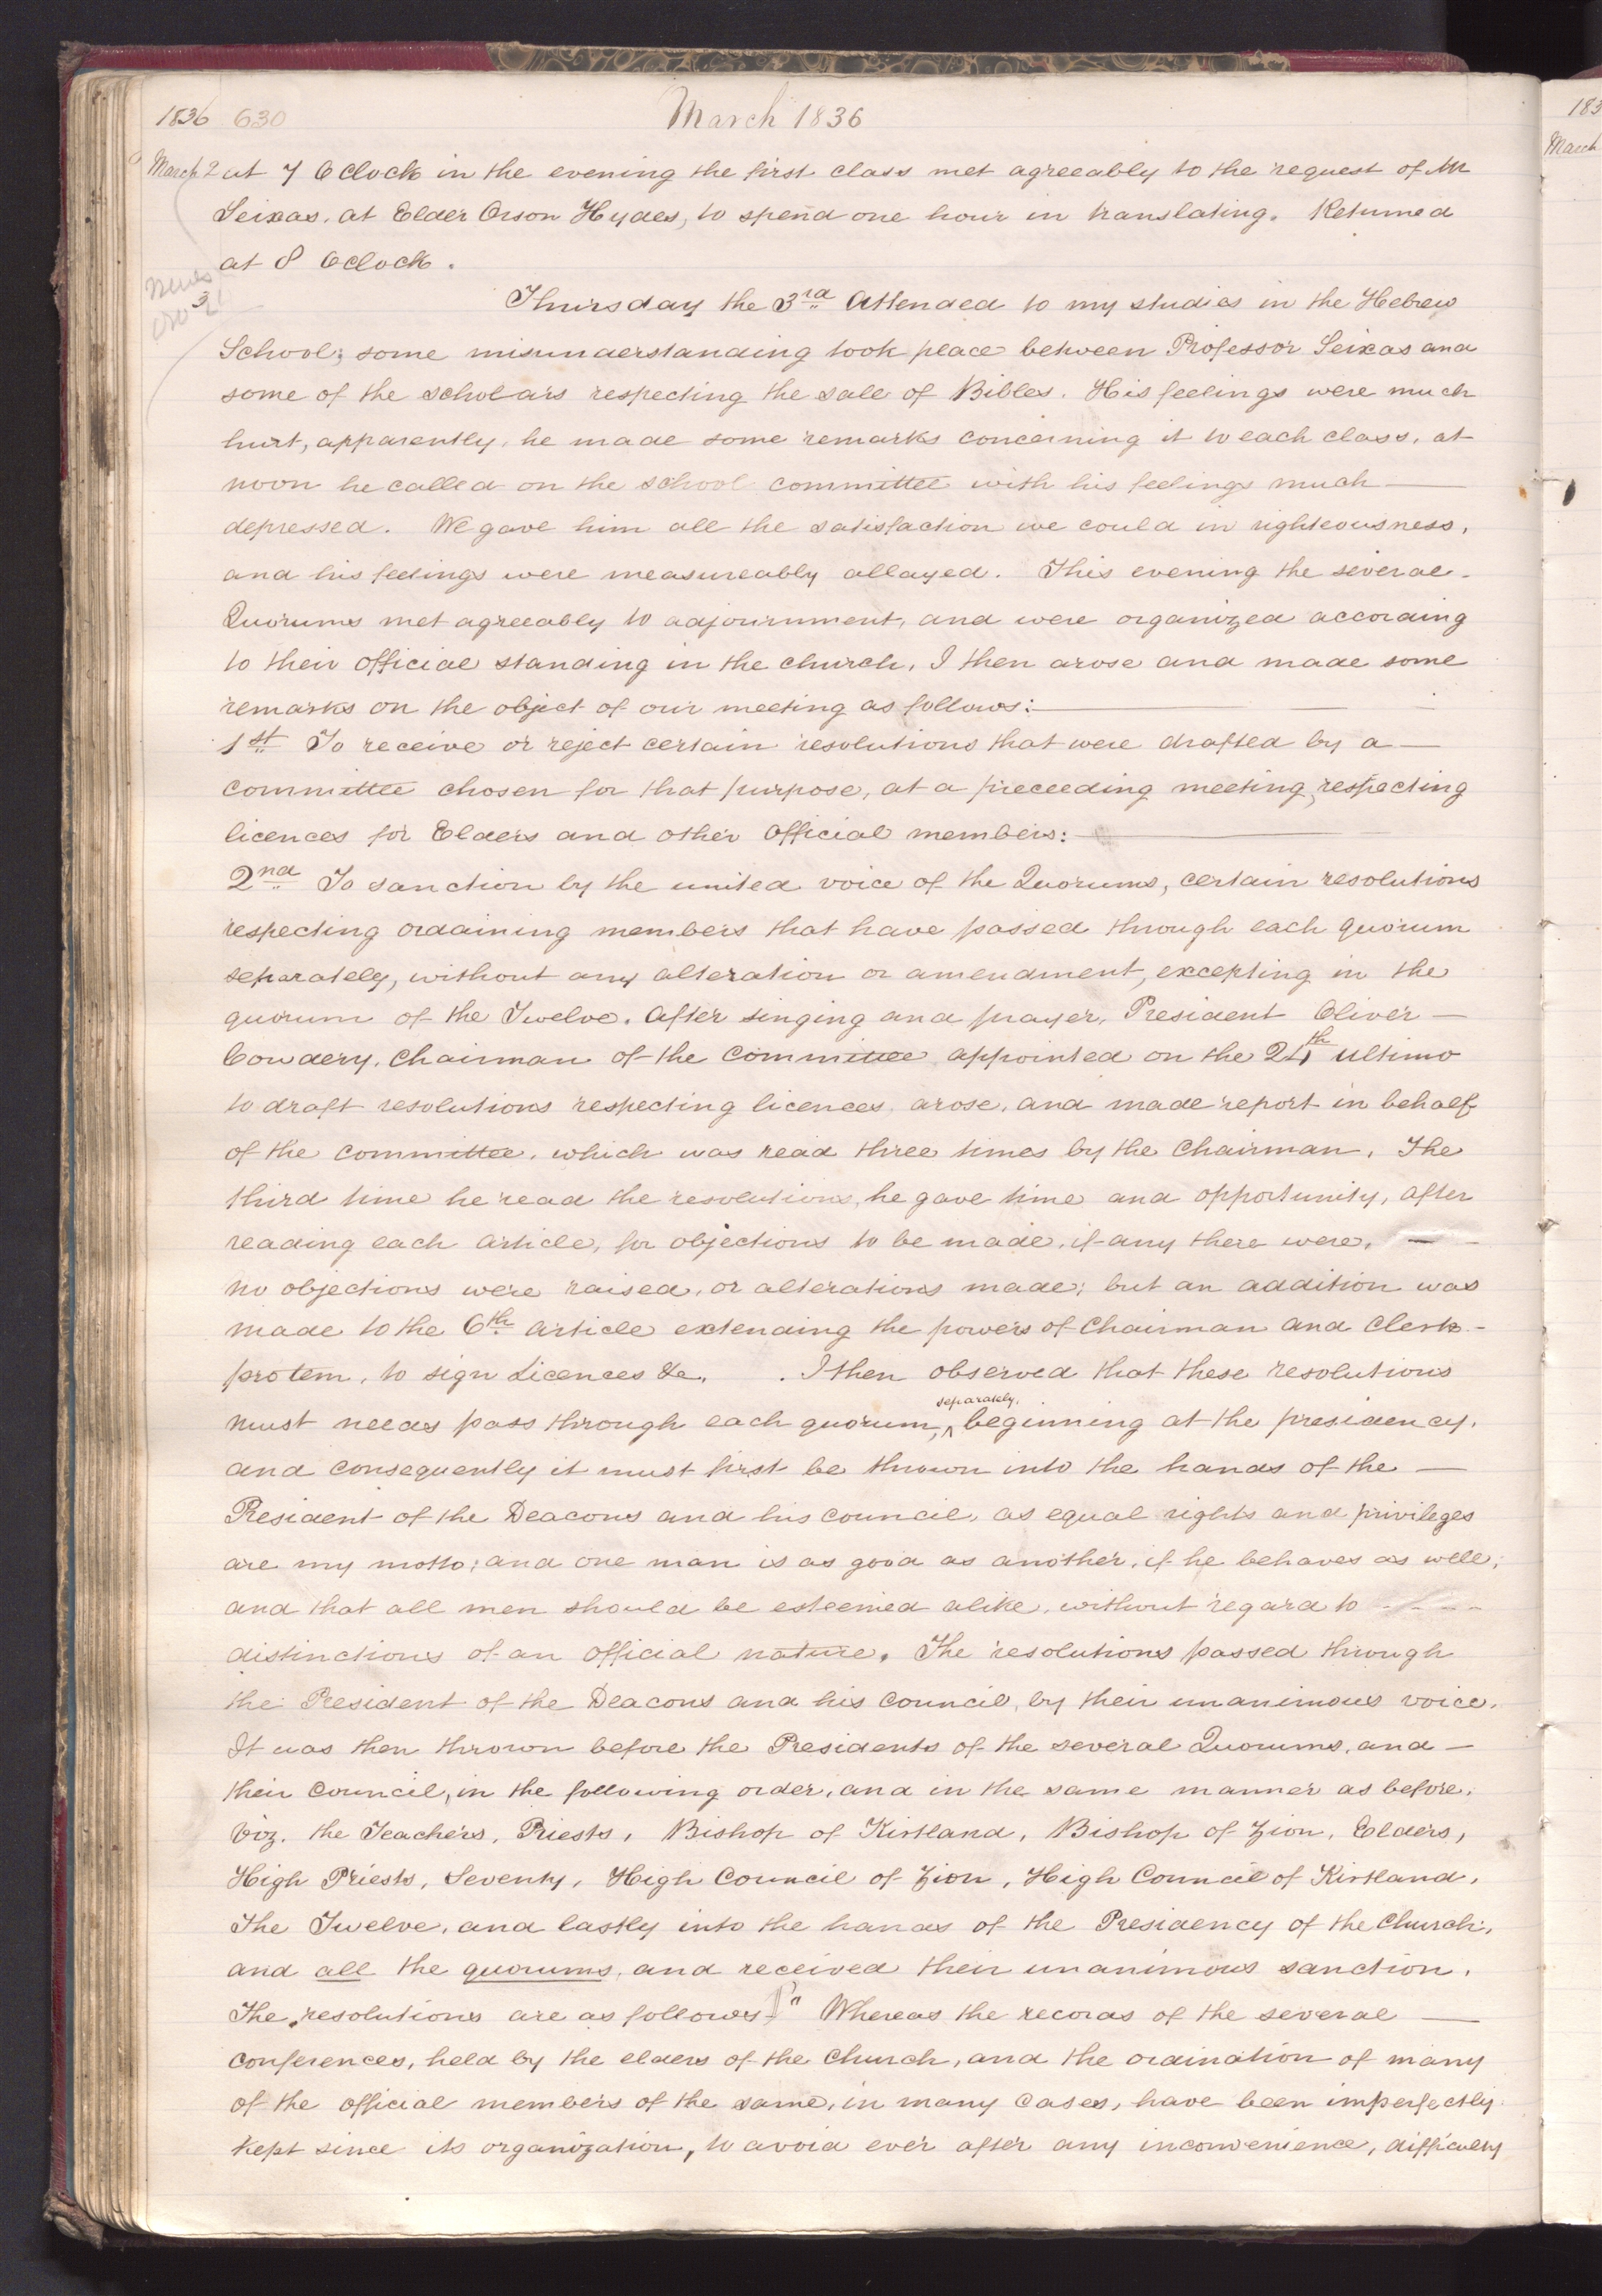 1836 630 March 1836
March 2 at 7 O Clock in the evening the first class met agreeably to the request of Mr
Seixas, at Elder Orson Hydes, to spend one hour in translating. Returned
at 8 Oclock.
3
Thursday the 3rd Attended to my studies in the Hebrew
School; some misunderstanding took place between Professor Seixas and
some of the scholars respecting the sale of Bibles. His feelings were much
hurt, apparently, he made some remarks concerning it to each class, at
noon he called on the school committee with his feelings much —
depressed. We gave him all the satisfaction we could in righteousness,
and his feelings were measureably allayed. This evening the several
Quorums met agreeably to adjournment, and were organized according
to their official standing in the church, I then arose and made some
remarks on the object of our meeting as follows: —
1st To receive or reject certain resolutions that were drafted by a —
committee chosen for that purpose, at a preceeding meeting, respecting
licences for Elders and other official members: —
2nd To sanction by the united voice of the Quorums, certain resolutions
respecting ordaining members that have passed through each quorum
seperately, without any alteration or amendment, excepting in the
quorum of the Twelve. After singing and prayer, President Oliver —
Cowdery, Chairman of the Committee appointed on the 24th ultimo
to draft resolutions respecting licences, arose, and made report in behalf
of the committee, which was read three times by the Chairman, The
third time he read the resolutions, he gave time and opportunity, after
reading each article, for objections to be made, if any there were, —
no objections were raised, or alterations made; but an addition was
made to the 6th Article extending the powers of Chairman and Clerk -
protem, to sign Licences &c. . I then observed that these resolutions
separately.
must needs pass through each quorum, ^ beginning at the presidency,
and consequently it must first be thrown into the hands of the —
President of the Deacons and his council, as equal rights and privileges
are my motto; and one man is as good as another, if he behaves as well;
and that all men should be esteemed alike, without regard to - - - -
distinctions of an official nature. The resolutions passed through
the President of the Deacons and his Council, by their unanimous voice.
It was then thrown before the Presidents of the several Quorums, and —
their Council, in the following order, and in the same manner as before,
Viz. the Teachers, Priests, Bishop of Kirtland, Bishop of Zion, Elders,
High Priests, Seventy, High Council of Zion, High Council of Kirtland,
The Twelve, and lastly into the hands of the Presidency of the Church,
and all the quorums, and received their unanimous sanction.
The resolutions are as follows "Whereas the records of the several —
conferences, held by the elders of the Church, and the ordination of many
of the official members of the same, in many cases, have been imperfectly
kept since its organization, to avoid ever after any inconvenience, difficulty
183
March